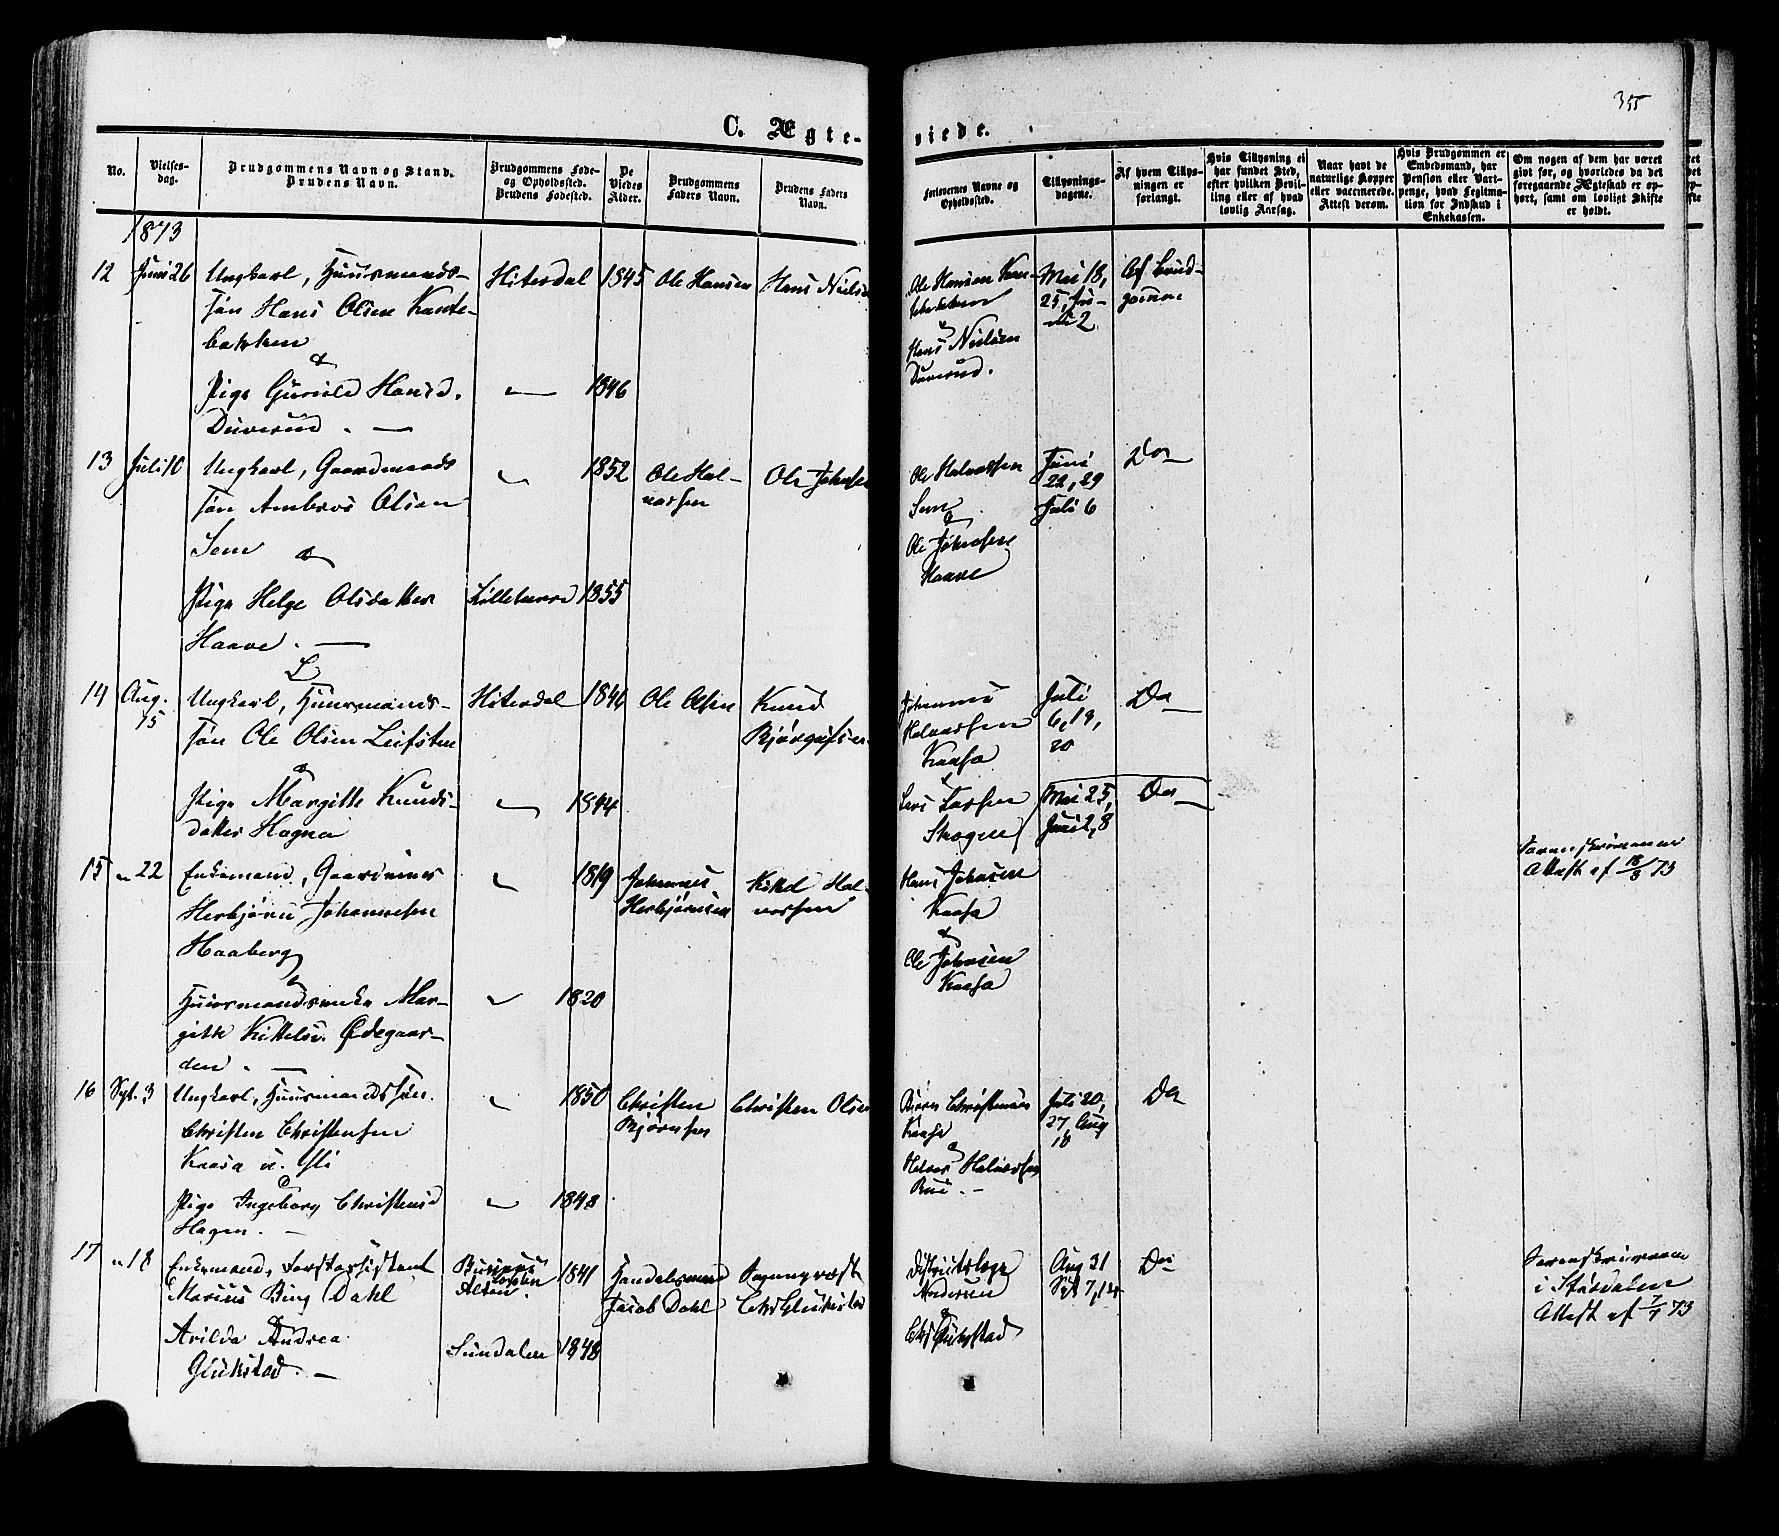 355
C. Ægteviede.
No.
Vielsesdag.
Brudgommens Navn og Stand.
Brudens Navn.
Brudgommens Føde-
og Opholdssted.
Brudens Fødested.
De
Viedes
Alder.
Brudgommens
Faders Navn.
Brudens Faders
Navn.
Forlovernes Navne og
Opholdssted.
Tillysnings-
dagene.
Af hvem Tillys-
ningen er
forlangt.
Hvis Tillysning ei
har fundet Sted,
efter hvilken Bevil-
ling eller af hvad
lovlig Aarsag.
Naar havt de
naturlige Kopper
eller vaccinerede.
Attest derom.
Hvis Brudgommen er
Embedsmand, har
Pension eller Vart-
penge, hvad Legitima-
tion for Indskud i
Enkekassen.
Om nogen af dem har været
givt før, og hvorledes da det
foregaaende Ægteskab er op-
hørt, samt om lovligt Skifte
er holdt.
1873
12 Juni 26 Ungkarl, Huusmands-
søn Hans Olsen Kaste-
bakken
&
Pige Gunild Hansd.
Duverud
Hiterdal 1845 Ole Hansen Hans Nielsen
1846
Ole Hansen
&
Hans Nielsen
Duverud.
Mai 18,
25, Ju-
ni 2
Af Brud-
gomme
13 Juli 10 Ungkarl, Gaardmands
søn Ambros Olsen
Sem &
Pige Helge Olsdatter
Haave
1852 Ole Hal-
vorsen
Ole Johnsen
Lilleherre 1855
Ole Halvorsen
Sem
&
Ole Johnsen
Haave
Juni
22, 29
Juli 6
Do
14 Aug. 15 Ungkarl, Huusmands-
søn Ole Olsen Leifsten
&
Pige Margitte Knuds-
datter Hogna
Hiterdal 1846 Ole Olsen Knud
1844
Halvorsen
Kaasa
&
Lars
Skogen
Juli
6, 13,
20
Do
15 " 22 Enkemand, Gaardmand
Herbjørn Johannesen
Haaberg
&
Huusmandsenke Mar-
gith Kittelsd. Ødegaar-
den
1819 Johannes
Herbjørnsen
Kittel Hal-
vorsen
1820
Hans Johnsen
Kaasa
&
Ole Johnsen
Kaasa
Mai 25,
Juni 2, 8
Do
Attest af 18/8 73
16 Sept. 3 Ungkarl, Huusmandssøn
Christen Christensen
Kaasa
&
Pige Ingeborg Christensd
Hagen
1850 Christen
Bjørnsen
Christen Olsen
1848
Bjørn Christensen
Kaasa
&
Halvor Halvorsen
Juli 20,
27, Aug
10
Do
17 " 18 Enkemand, Forstassistent
Marius Bing Dahl
&
Arilda Andrea
Glückstad
1841 Handelsmand
Jacob Dahl
Sogneprest
Sundalen 1848
Distriktslæge
Andersen
&
Chr Glückstad
Aug 31
Sept 7, 14
Do
i Størdalen
Attest af 7/7 73